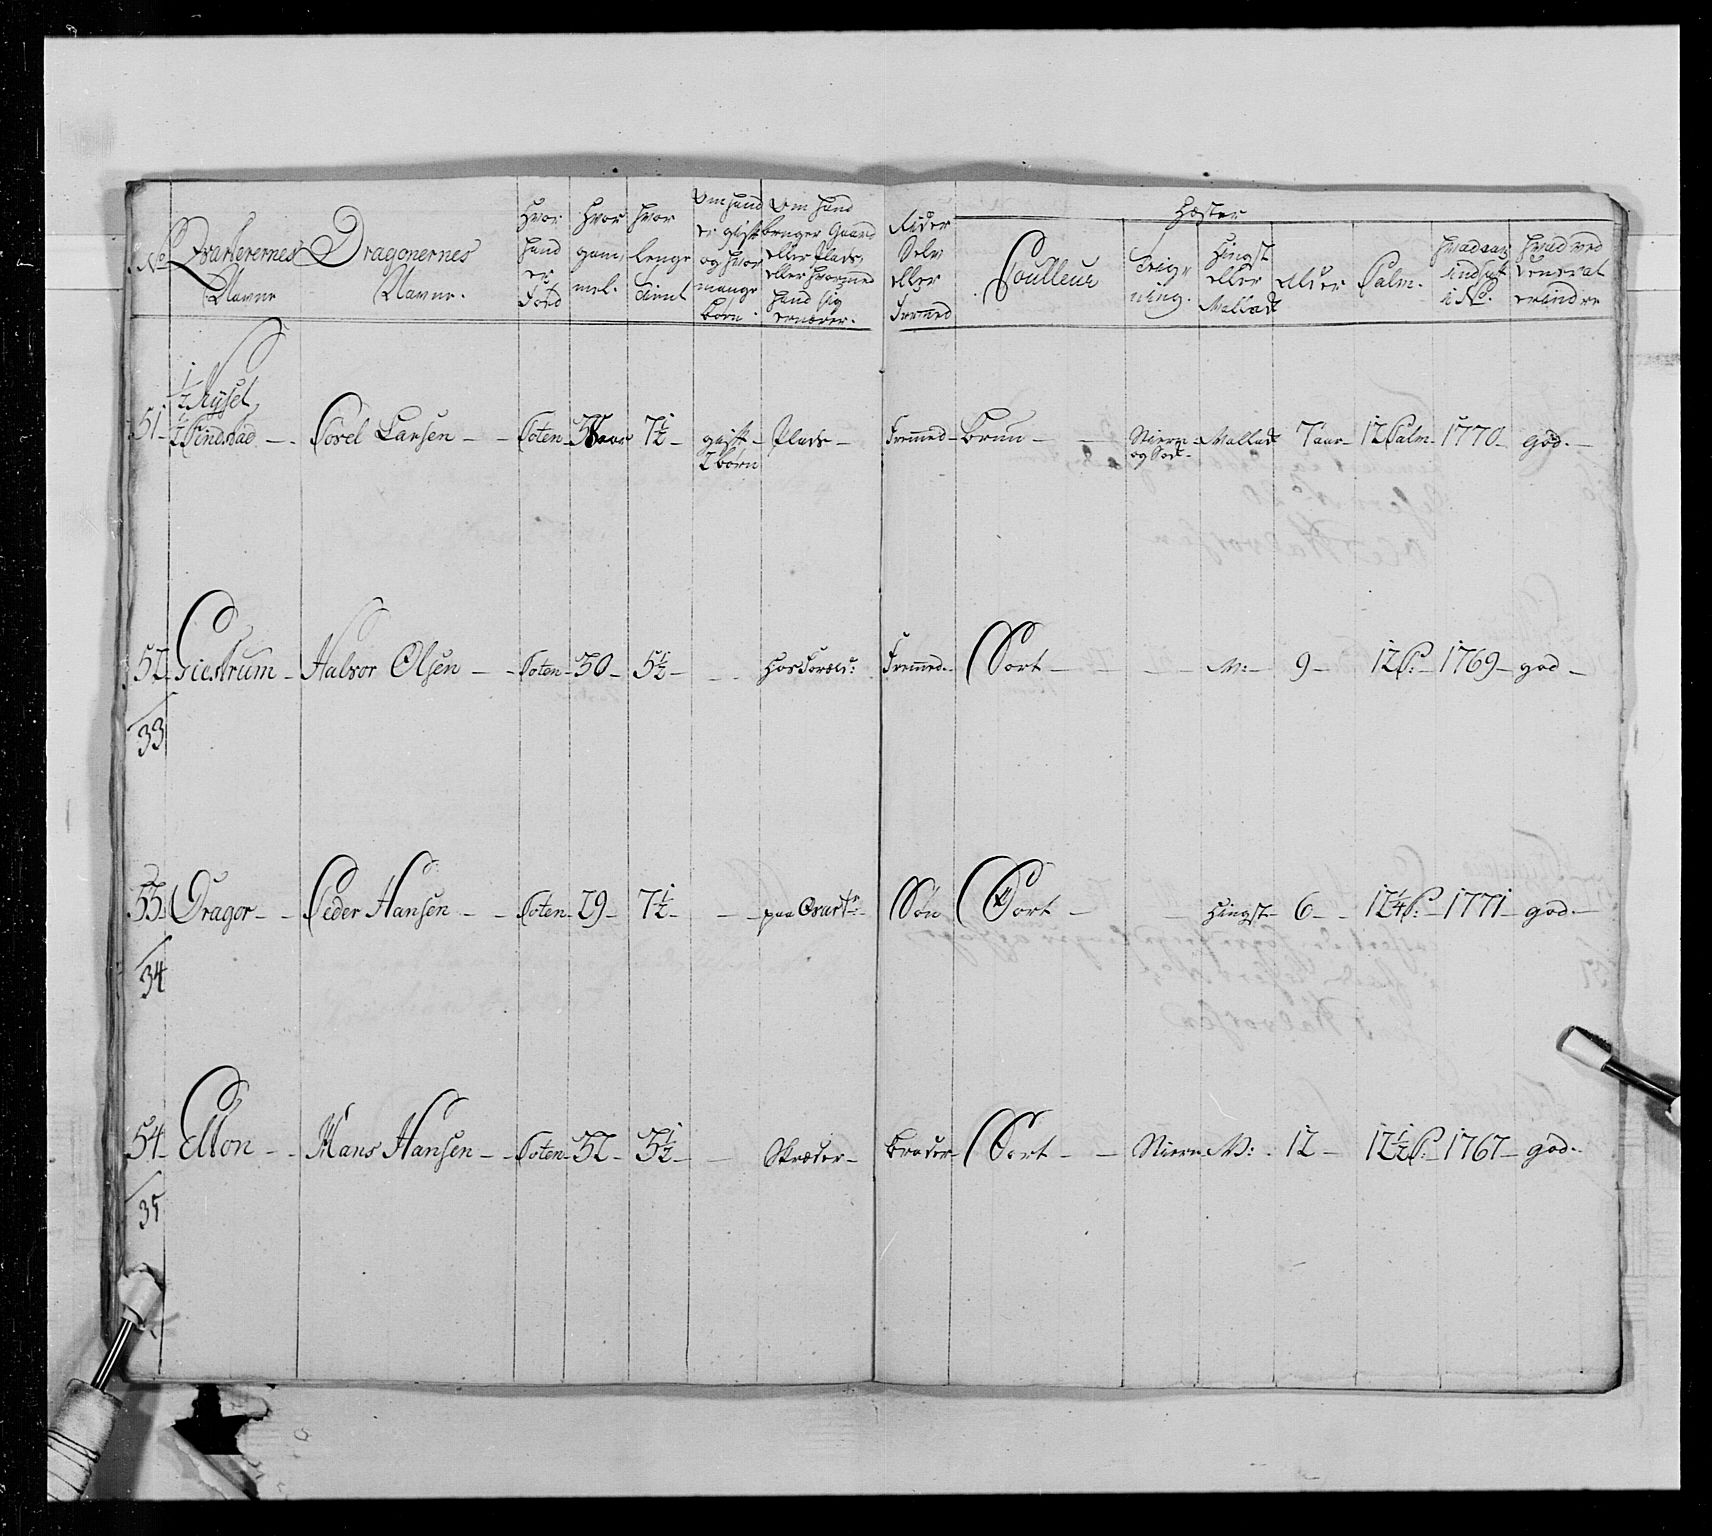 No Qvarterernes Navne
Dragonernes Navne.
Hvor hand er Fød
Hvor gam, mel.
Hvor lenge tient
Om hand er gift og hvor mange børn.
Om hand bruger Gaard eller Plads, eller hvormed hand sig ernærer.
Rider Selv eller Fremmed
Hæster
Coulleur
Teig, ning.
Hingst eller Vallack
Alder
Palm.
hvad aar indsat i No.
hvad ved General
erindre
51 ½ Rÿsel, ½ Findstad - Povel Larsen - Toten - aar 7½ - gift 2 børn - Plads - Fremmed - Brun - og Vallack 7 aar - 12 Palm - 1770 - god. -
52 Giestrum - Halvor Olsen - Toten - 30 - 5½ - hos Foræld: Fremmed - Sort - V: - 9 - 12 P: - 1769 - god -
33
53 Dragor - Peder Hansen - Toten - 29 - 7½ - paa Qvart: Søn Sort - Hingst - 6 - 12¼ P: - 1771 - god. -
34
54 Elton - Hans Hansen - Toten - 32 - 3½ - Skreder - Broder - Sort - V: 12 - 12½ P. - 1767 - god. -
35